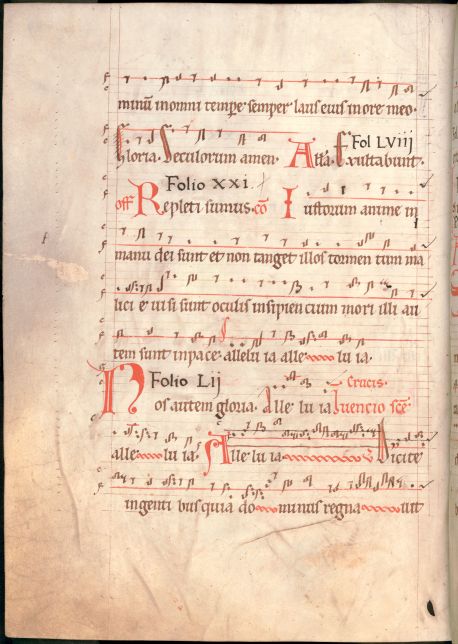 minū in omni tempe semper laus eius in ore meo.
Gloria. Seculorum amen. Alla. Fol LVIIJ Exultabunt.
Folio XXI.
off Repleti sumus. cō Iustorum anime in
manu dei sunt et non tanget illos tormen tum ma
lici e ui si sunt oculis insipiencium mori illi au
tem sunt in pace. allelu ia alle lu ia.
Folio LIJ Crucis.
Nos autem gloria. Alle lu ia Inuencio scē
alle lu ia. Alle lu ia ℣ Dicite
ingenti bus quia do minus regna uit